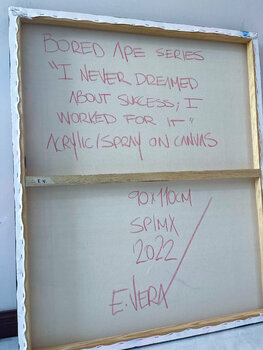 BORED APE SERIES
"I NEVER DREAMED
ABOUT SUCCESS; I
WORKED FOR IT"
ACRYLIC/SPRAY ON CANVAS
90x110CM
SPIMX
2022
E.VERA